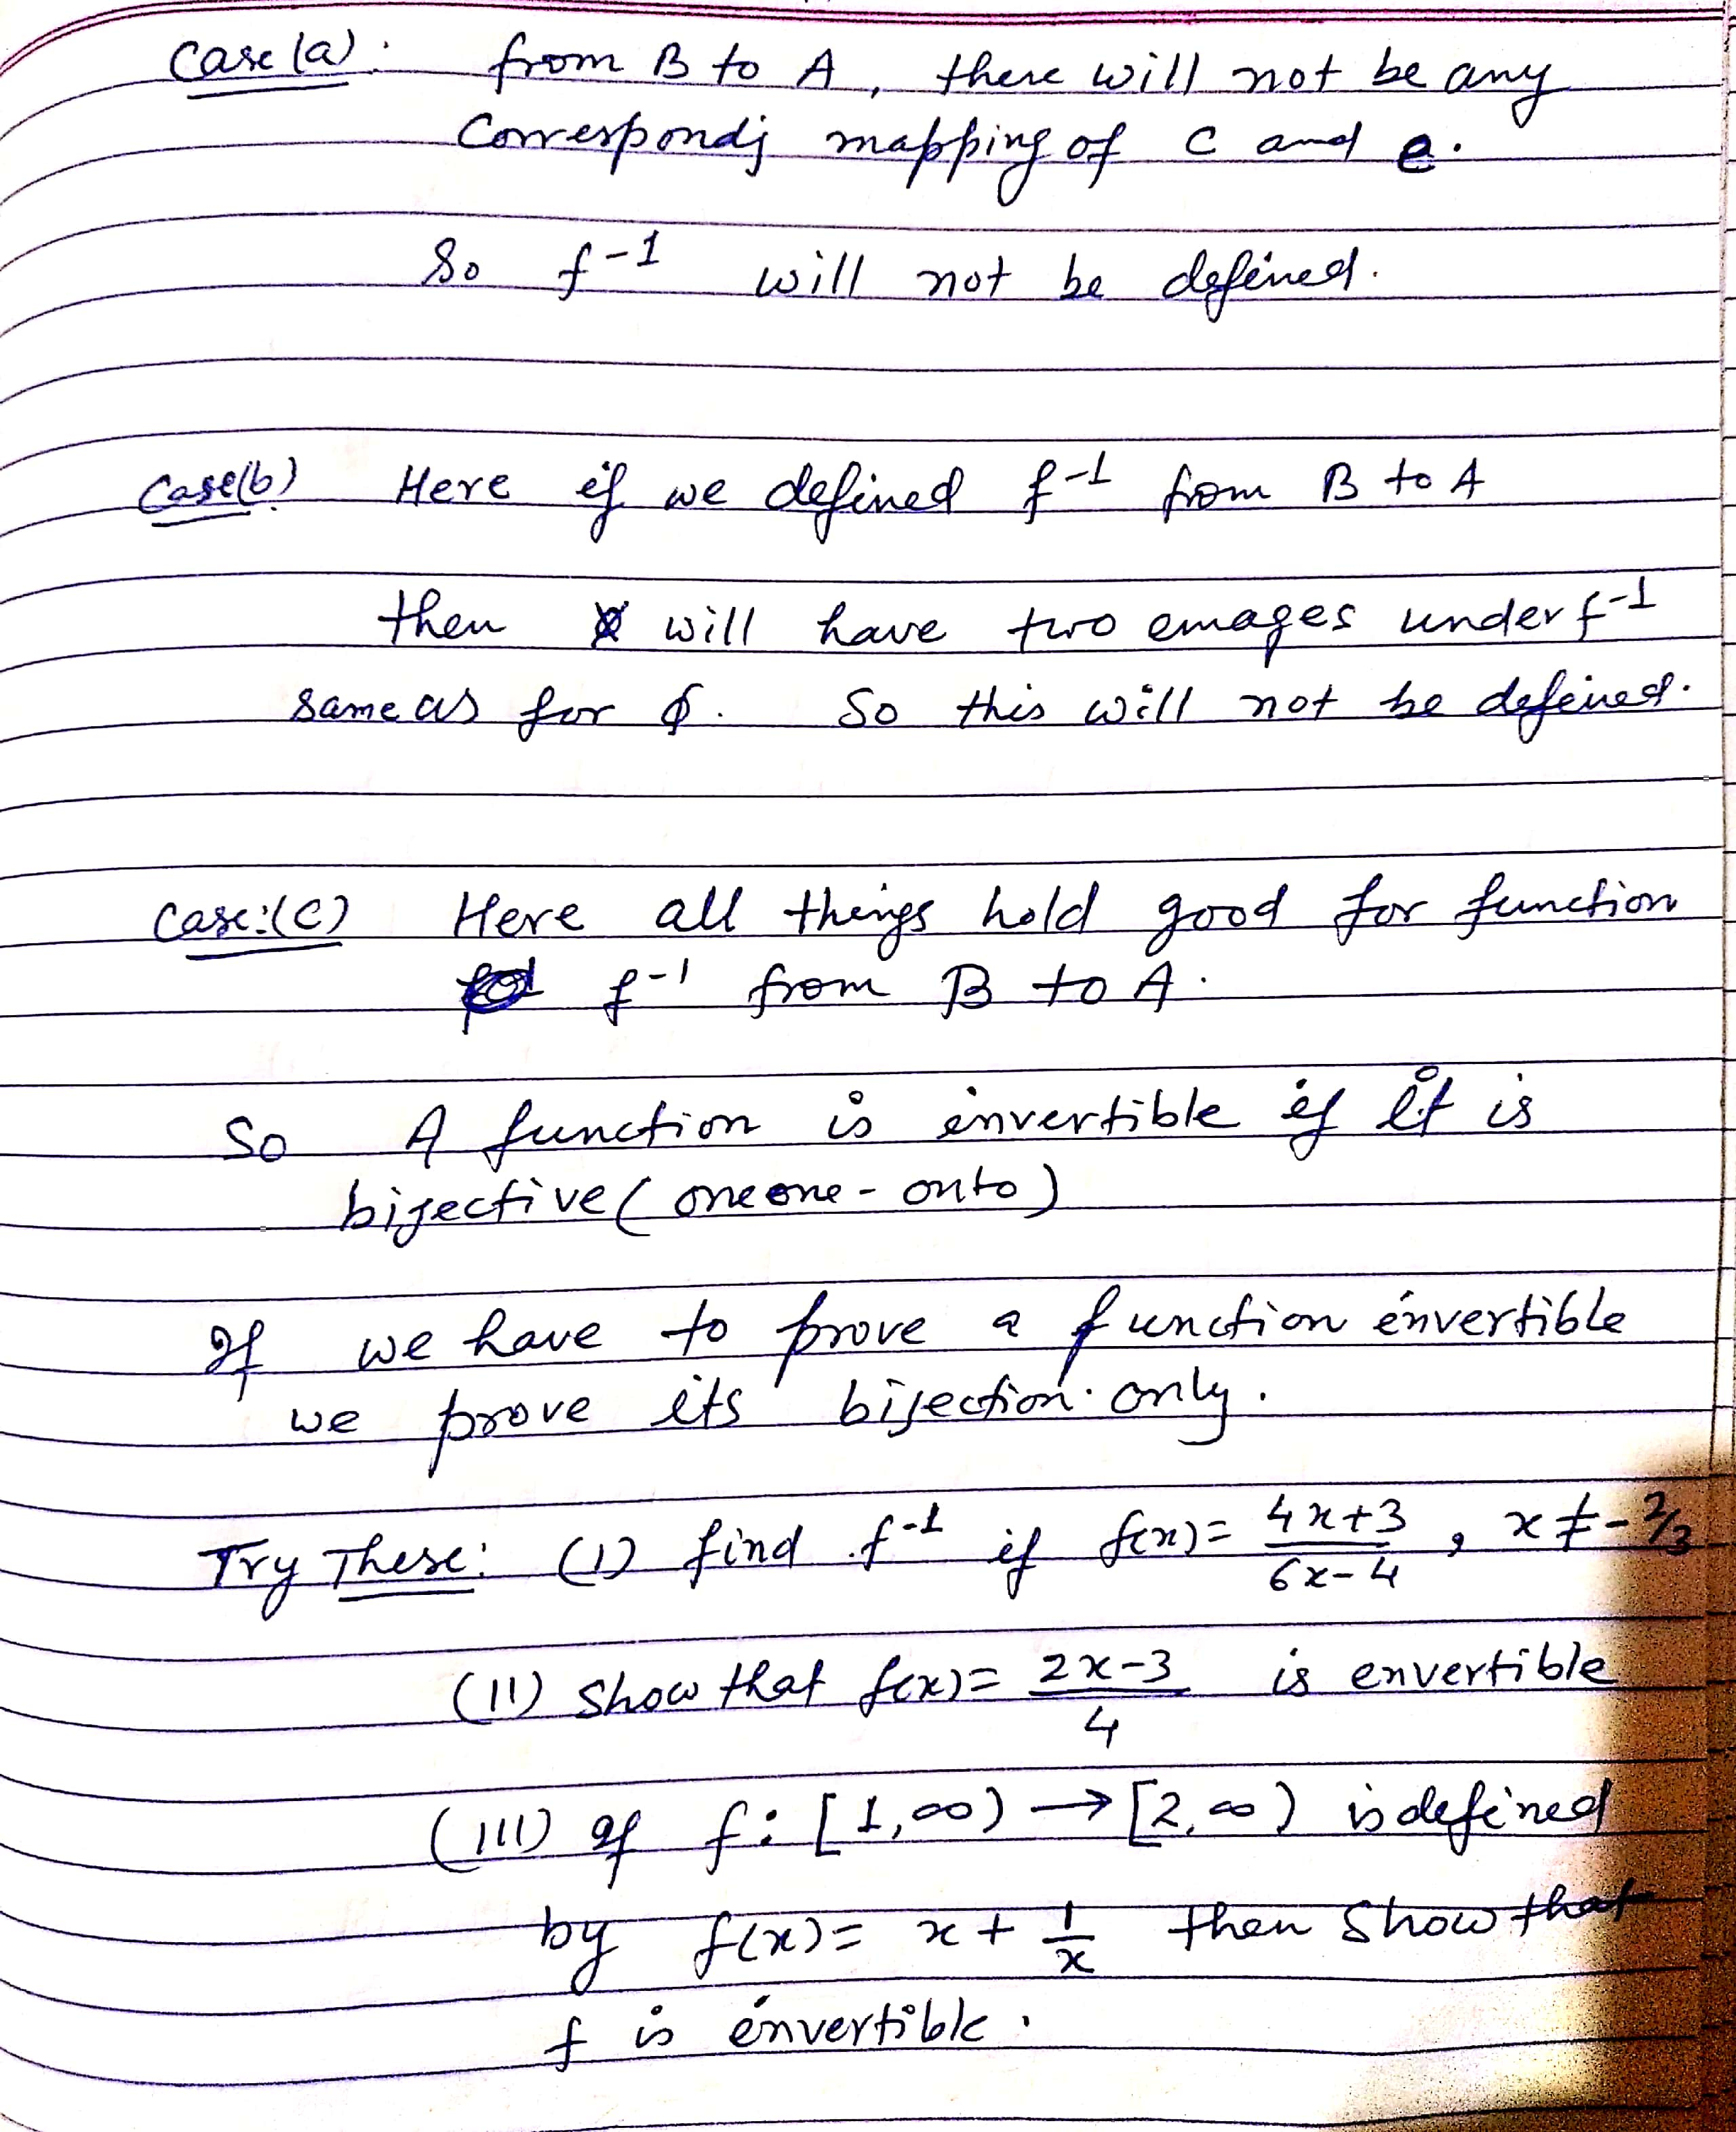 Case (a): from B to A, there will not be any
Correspondj mapping of c and e.
So f⁻¹ will not be defined.
Case(b) Here if we defined f⁻¹ from B to A
then will have two emages under f⁻¹
same as for So this will not be defined.
Case:(C) Here all things hold good for function
f⁻¹ from B to A.
So A function is invertible if it is
bijective (one one - onto)
If we have to prove a function invertible
we prove its bijection only.
Try These: (I) find f⁻¹ if f(x) = (4x+3)/(6x-4), x ≠ -2/3
(II) Show that f(x) = (2x-3)/4 is envertible
(III) If f: [1,∞) → [2,∞) is defined
by f(x) = x + 1/x then Show that
f is invertible.